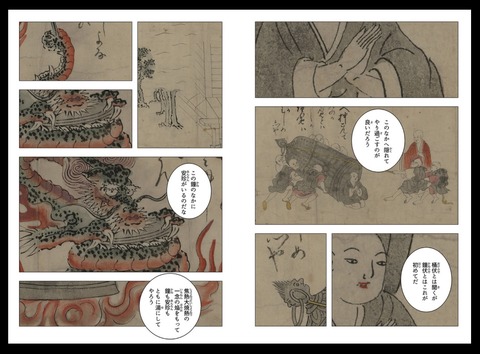 このなかへ隠れて
やり過ごすのが
良いだろう
桶伏とは聞くが
鐘伏とはこれが
初めてだ
この鐘のなかに
安珍がいるのだな
焦熱大焦熱の
一念の焔をもって
鐘も安珍も
ともに湯にして
やろう